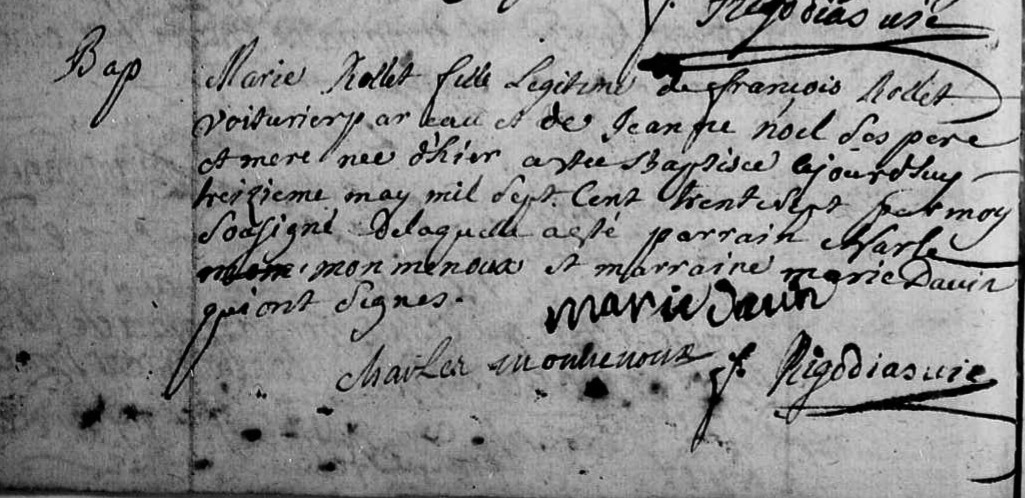 f. Rigodias curé
Bap
Marie Rollet fille Legitime de françois Rollet
voiturier par eau et de Jeanne noel Ses pere
et mere née d'hier a estée Baptisée aujourdhuy
treizieme may mil Sept Cent trente Sept par moy
Sousigné De laquelle a esté parrain charle
monmenoux et marraine marie Dauin
qui ont Signes.
marie dauin
charles monmenoux f. Rigodias curé